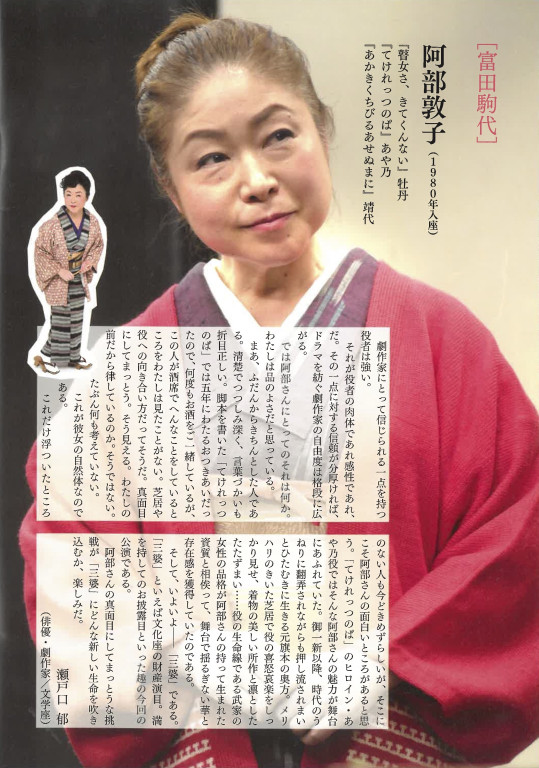 [富田駒代]
阿部敦子(1980年入座)
『瞽女さ、きてくんない』牡丹
『てけれっつのぱ』あや乃
『あかきくちびるあせぬまに』靖代
劇作家にとって信じられる一点を持つ
役者は強い。
それが役者の肉体であれ感性であれ、
だ。その一点に対する信頼が分厚ければ、
ドラマを紡ぐ劇作家の自由度は格段に広
がる。
では阿部さんにとってのそれは何か。
わたしは品のよさだと思っている。
まあ、ふだんからきちんとした人であ
る。清楚でつつしみ深く、言葉づかいも
折目正しい。脚本を書いた「てけれっつ
のぱ」では五年にわたるおつきあいだっ
たので、何度もお酒をご一緒しているが、
この人が酒席でへんなことをしていると
ころをわたしは見たことがない。芝居や
役への向き合い方だってそうだ。真面目
にしてまっとう。そう見える。わたしの
前だから律しているのか。そうではない。
たぶん何も考えていない。
これが彼女の自然体なので
ある。
これだけ浮ついたところ
のない人も今どきめずらしいが、そこに
こそ阿部さんの面白いところがあると思
う。「てけれっつのぱ」のヒロイン・あ
や乃役ではそんな阿部さんの魅力が舞台
にあふれていた。御一新以降、時代のう
ねりに翻弄されながらも押し流されまい
とひたむきに生きる元旗本の奥方。メリ
ハリのきいた芝居で役の喜怒哀楽をしっ
かり見せ、着物の美しい所作と凛とした
たたずまい……役の生命線である武家の
女性の品格が阿部さんの持って生まれた
資質と相俟って、舞台で揺るぎない華と
存在感を獲得していたのである。
そして、いよいよ――「三婆」である。
「三婆」といえば文化座の財産演目。満
を持してのお披露目といった趣の今回の
公演である。
阿部さんの真面目にしてまっとうな挑
戦が「三婆」にどんな新しい生命を吹き
込むか、楽しみだ。
瀬戸口 郁
(俳優・劇作家/文学座)